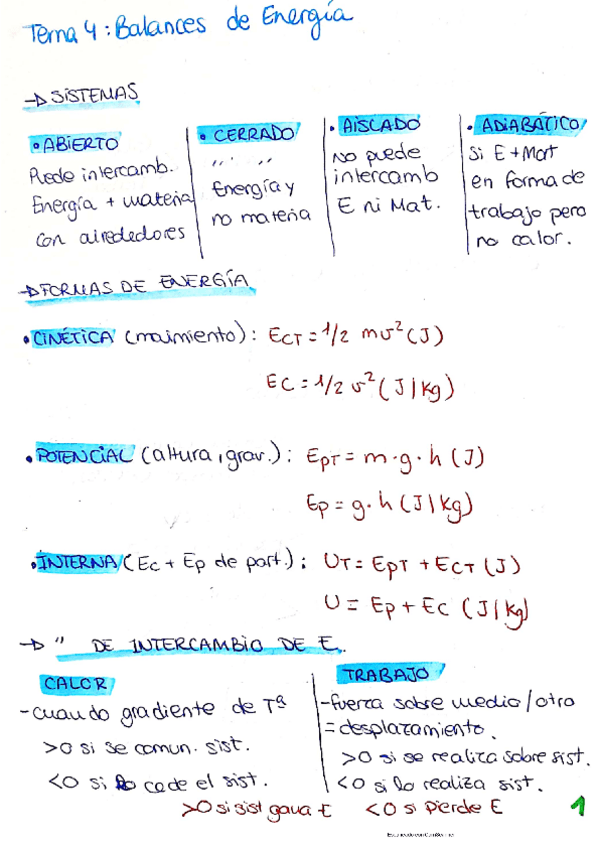 Tema 4: Balances de Energía
→ SISTEMAS
• ABIERTO
Puede intercamb.
Energía + materia
con alrededores
• CERRADO
" " "
Energía y
no materia
• AISLADO
No puede
intercamb
E ni Mat.
• ADIABÁTICO
Si E + Mat
en forma de
trabajo pero
no calor.
→ FORMAS DE ENERGÍA
• CINÉTICA (movimiento): ECT = 1/2 mv² (J)
EC = 1/2 v² (J/Kg)
• POTENCIAL (altura, grav.): EPT = m·g·h (J)
Ep = g·h (J/kg)
• INTERNA (Ec + Ep de part.): UT = EPT + ECT (J)
U = Ep + Ec (J/kg)
→ " DE INTERCAMBIO DE E.
CALOR
- cuando gradiente de Tª
>0 si se comun. sist.
<0 si lo cede el sist.
TRABAJO
- fuerza sobre medio/otro
= desplazamiento.
>0 si se realiza sobre sist.
<0 si lo realiza sist.
>0 si sist gana E <0 si pierde E
1
Escaneado con CamScanner